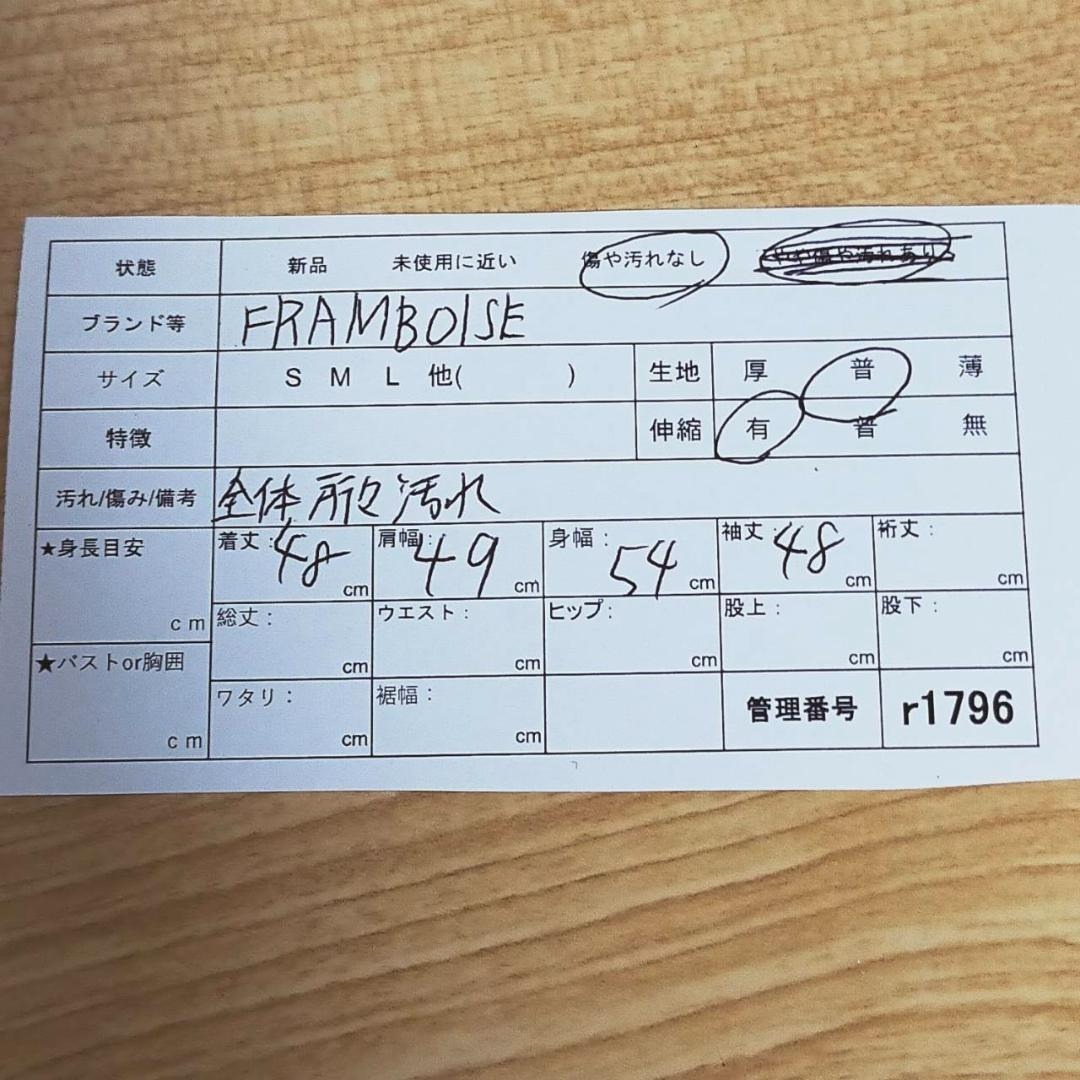 状態 新品 未使用に近い 傷や汚れなし やや傷や汚れあり
ブランド等 FRAMBOISE
サイズ S M L 他( ) 生地 厚 普 薄
特徴 伸縮 有 普 無
汚れ/傷み/備考 全体所々汚れ
★身長目安 cm
着丈:48cm 肩幅:49cm 身幅:54cm 袖丈:48cm 裄丈:cm
総丈:cm ウエスト:cm ヒップ:cm 股上:cm 股下:cm
★バストor胸囲 cm
ワタリ:cm 裾幅:cm 管理番号 r1796